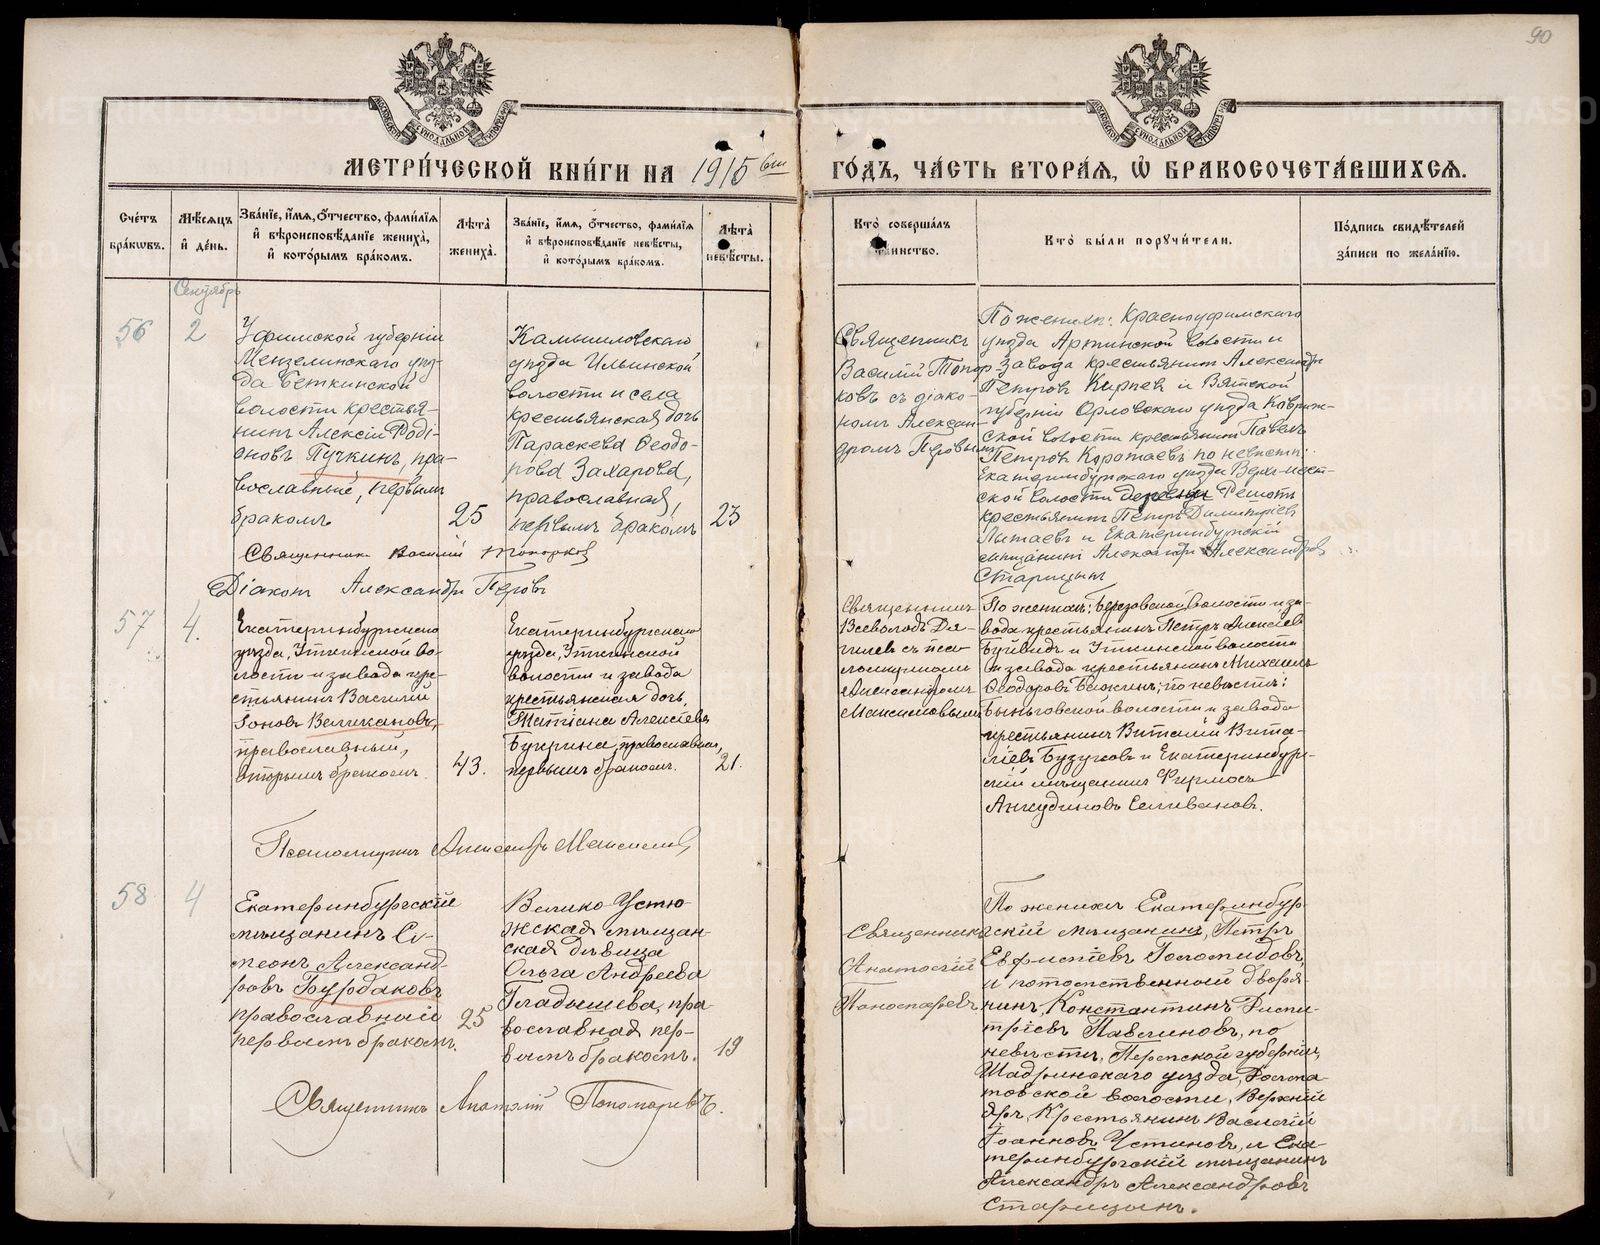 90
МЕТРИ́ЧЕСКОЙ КНИ́ГИ НА 1915 ый
ГО́ДЪ, ЧА́СТЬ ВТОРА́Я, Ѡ БРАКОСОЧЕТА́ВШИХСЯ.
Сче́тъ бра́кѡвъ.
Мѣ́сяцъ и҆ де́нь.
Зва́нїе, и҆́мя, ѻ҆́тчество, фами́лїя и҆ вѣроисповѣ́данїе жениха̀, и҆ кото́рымъ бра́комъ.
Лѣ́та жениха̀.
Зва́нїе, и҆́мя, ѻ҆́тчество, фами́лїя и҆ вѣроисповѣ́данїе невѣ́сты, и҆ кото́рымъ бра́комъ.
Лѣ́та невѣ́сты.
Кто̀ соверша́лъ та́инство.
Кто̀ бы́ли порꙋчи́тели.
По́дпись свидѣ́телей за́писи по жела́нїю.
Сентябрь
56
2
Уфимской губерніи
Мензелинскаго уѣз-
да Беткинской
волости крестья-
нинъ Алексій Роді-
оновъ Пучкинъ, пра-
вославный, первымъ
бракомъ
25
Камышловскаго
уѣзда Ильинской
волости и села
крестьянская дочь
Параскева Ѳеодо-
рова Захарова,
православная,
первымъ бракомъ
23
Священникъ
Василій Топор-
ковъ съ діако-
номъ Алексан-
дромъ Перовымъ
По женихѣ: Красноуфимскаго
уѣзда Артинской волости и
завода крестьянинъ Александръ
Петровъ Кирпевъ и Вятской
губерніи Орловскаго уѣзда
ской волости крестьянинъ Павелъ
Петровъ Коротаевъ по невѣстѣ:
Екатеринбургскаго уѣзда Верх-исет-
ской волости деревни Решотъ
крестьянинъ Петръ Димитріевъ
Пытаевъ и Екатеринбургскій
мѣщанинъ Александръ Александровъ
Старицынъ
Священникъ Василій Топорковъ
Діаконъ Александръ Перовъ
57
4.
Екатеринбургскаго
уѣзда, Уткинской во-
лости и завода кре-
стьянинъ Василій
Іоновъ Великановъ,
православный,
вторымъ бракомъ.
43.
Екатеринбургскаго
уѣзда, Уткинской
волости и завода
крестьянская дочь
Татіана Алексіева
Бухрина, православная,
первымъ бракомъ.
21.
Священникъ
Всеволодъ Дя-
гилевъ съ пса-
ломщикомъ
Александромъ
Максимовымъ
По женихѣ: Березовской волости и за-
вода крестьянинъ Петръ Алексіевъ
и Уткинской волости
и завода крестьянинъ Михаилъ
Ѳеодоровъ Бажинъ; по невѣстѣ:
Быньговской волости и завода
крестьянинъ Виталій Вита-
ліевъ Бузуновъ и Екатеринбург-
скій мѣщанинъ Фирмосъ
Анкудиновъ Селивановъ.
Псаломщикъ Александръ Максимовъ
58
4
Екатеринбургскій
мѣщанинъ Си-
меонъ Александ-
ровъ Бурдаковъ
православный
первымъ бракомъ.
25
Велико-Устю-
жская мѣщан-
ская дѣвица
Ольга Андреева
Гладышева, пра-
вославная пер-
вымъ бракомъ.
19
Священникъ
Анатолій
Пономаревъ
По женихѣ Екатеринбур-
гскій мѣщанинъ, Петръ
Евфиміевъ Голомидовъ,
и потомственный дворя-
нинъ, Константинъ Дими-
тріевъ Павлиновъ, по
невѣстѣ, Пермской губерніи,
Шадринскаго уѣзда,
товской волости, Верхній
Яръ, Крестьянинъ Василій
Іоанновъ Устиновъ, и Ека-
теринбургскій мѣщанинъ
Александръ Александровъ
Старицынъ.
Священникъ Анатолій Пономаревъ.